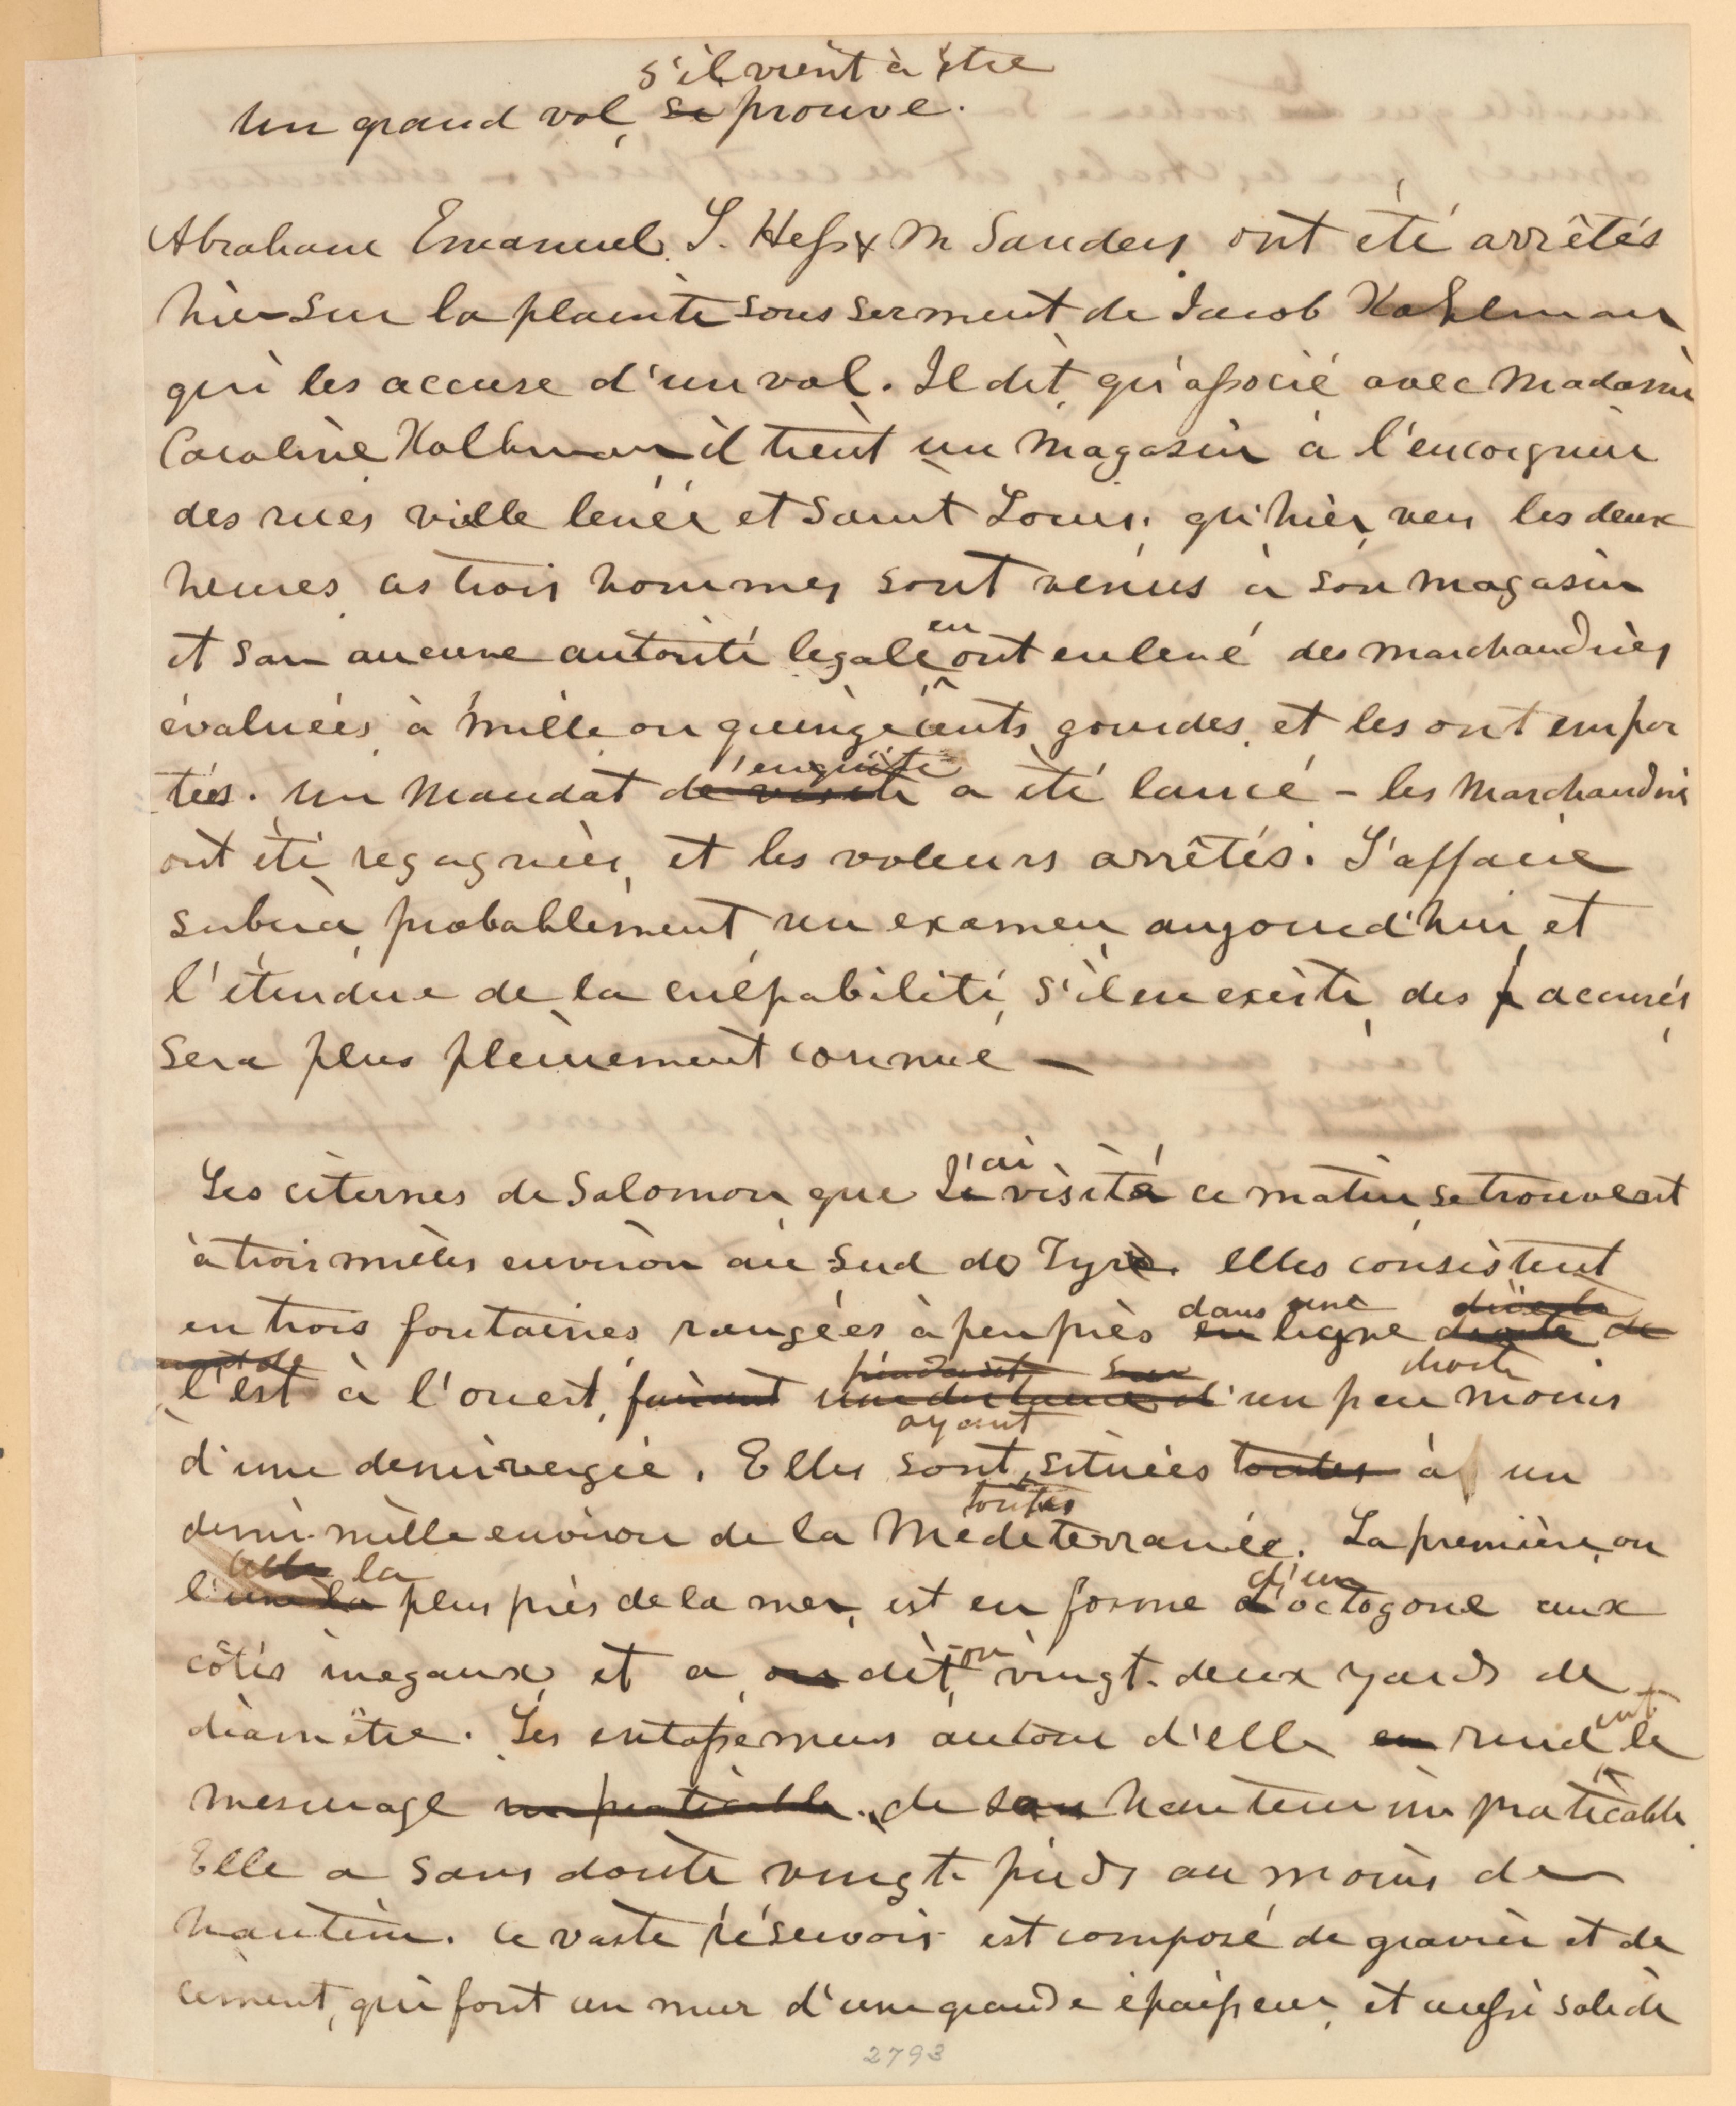 s'il vient à être
Un grand vol, se prouve.
Abraham Emanuel, S. Hess & M Sanders ont été arrêtés
hier sur la plainte sous serment de Jacob Kahlman
qui les accuse d'un vol. Il dit, qu'associé avec Madame
Caroline Kallman il tient un magasin à l'encoignure
des rues ville levée et Saint Louis, qu'hier, vers les deux
heures ces trois hommes sont venus à son magasin
en
et sans aucune autorité legale ont enlevé des marchandises
évaluées à mille ou quinze cents gourdes, et les ont empor
tées. Un mandat de visite a été lancé – les marchandises
d'enquête
ont été regagnées, et les voleurs arrêtés. L'affaire
subira, probablement un examen aujourd'hui et
l'étendue de la culpabilité, s'il en existe, des accusés
sera plus pleinement connue —
j'ai
Les citernes de Salomon, que Je visité ce matin, se trouvent
à trois milles environ au sud de Tyre. elles consistent
dans une directe
en trois fontaines rangées à peu près en ligne droite de
droite
l'est à l'ouest, faisant une distance d'un peu moins
pendant sur
ayant
d'une demi-vergée. Elles sont, situées toutes à un
toutes
demi-mille environ de la Mediterranée. La première, ou
celle la
l'une la plus près de la mer, est en forme d'octogone aux
d'un
côtés inegaux, et a, on dit, vingt-deux yards de
-on
diamêtre. Les entassemens autour d'elle en rend le
ent
mesurage impraticable. de son hauteur impraticable
Elle a sans doute vingt-pieds au moins de
hauteur. Ce vaste réservoir est composé de gravier et de
ciment, qui font un mur d'une grande épaisseur, et aussi solide
2793